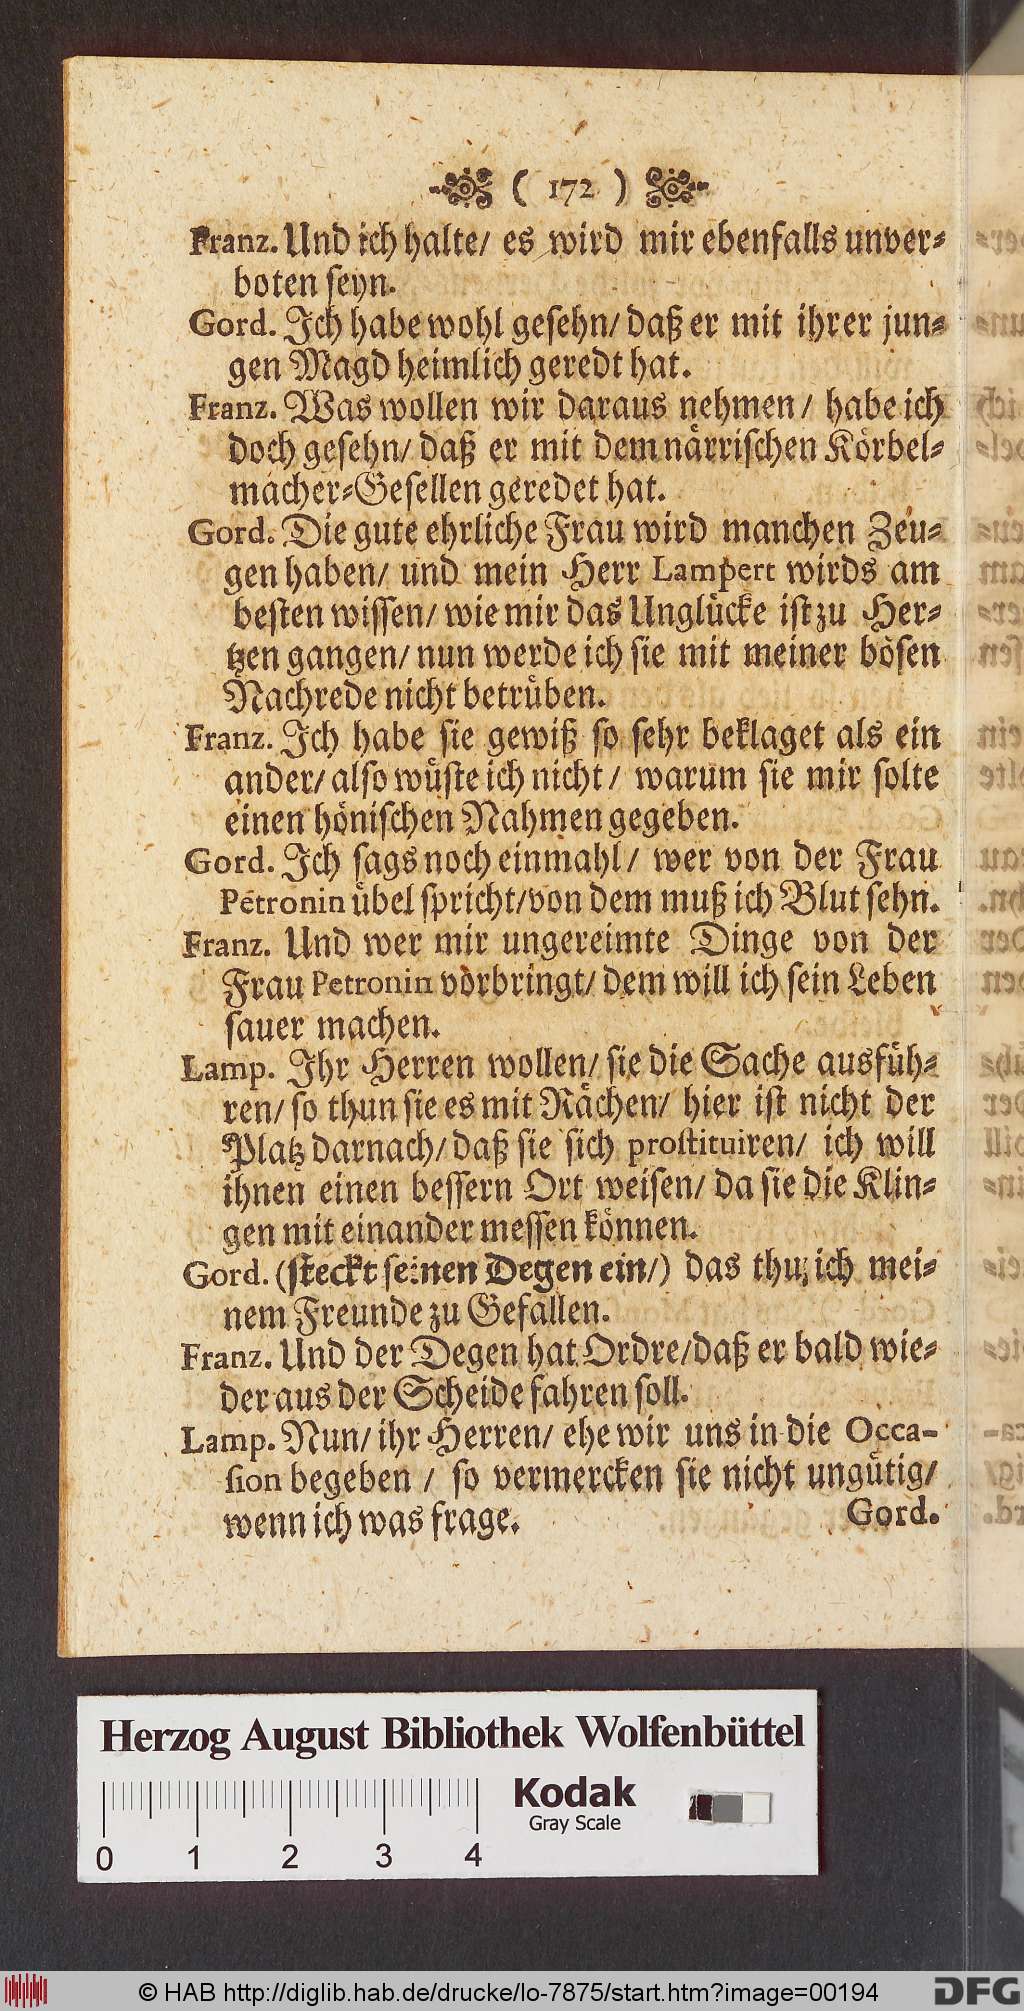 ( 172 )
Franz. Und ich halte/ es wird mir ebenfalls unver⸗
boten seyn.
Gord. Ich habe wohl gesehn/ daß er mit ihrer jun⸗
gen Magd heimlich geredt hat.
Franz. Was wollen wir daraus nehmen/ habe ich
doch gesehn/ daß er mit dem närrischen Körbel⸗
macher⸗Gesellen geredet hat.
Gord. Die gute ehrliche Frau wird manchen Zeu⸗
gen haben/ und mein Herr Lampert wirds am
besten wissen/ wie mir das Unglücke ist zu Her⸗
tzen gangen/ nun werde ich sie mit meiner bösen
Nachrede nicht betrüben.
Franz. Ich habe sie gewiß so sehr beklaget als ein
ander/ also wüste ich nicht/ warum sie mir solte
einen hönischen Nahmen gegeben.
Gord. Ich sags noch einmahl/ wer von der Frau
Petronin übel spricht/ von dem muß ich Blut sehn.
Franz. Und wer mir ungereimte Dinge von der
Frau Petronin vorbringt/ dem will ich sein Leben
sauer machen.
Lamp. Ihr Herren wollen/ sie die Sache ausfüh⸗
ren/ so thun sie es mit Rächen/ hier ist nicht der
Platz darnach/ daß sie sich prostituiren/ ich will
ihnen einen bessern Ort weisen/ da sie die Klin⸗
gen mit einander messen können.
Gord. (steckt seinen Degen ein/) das thu ich mei⸗
nem Freunde zu Gefallen.
Franz. Und der Degen hat Ordre/ daß er bald wie⸗
der aus der Scheide fahren soll.
Lamp. Nun/ ihr Herren/ ehe wir uns in die Occa-
sion begeben / so vermercken sie nicht ungütig/
wenn ich was frage.
Gord.
Herzog August Bibliothek Wolfenbüttel
Kodak
Gray Scale
0 1 2 3 4
© HAB http://diglib.hab.de/drucke/lo-7875/start.htm?image=00194
DFG